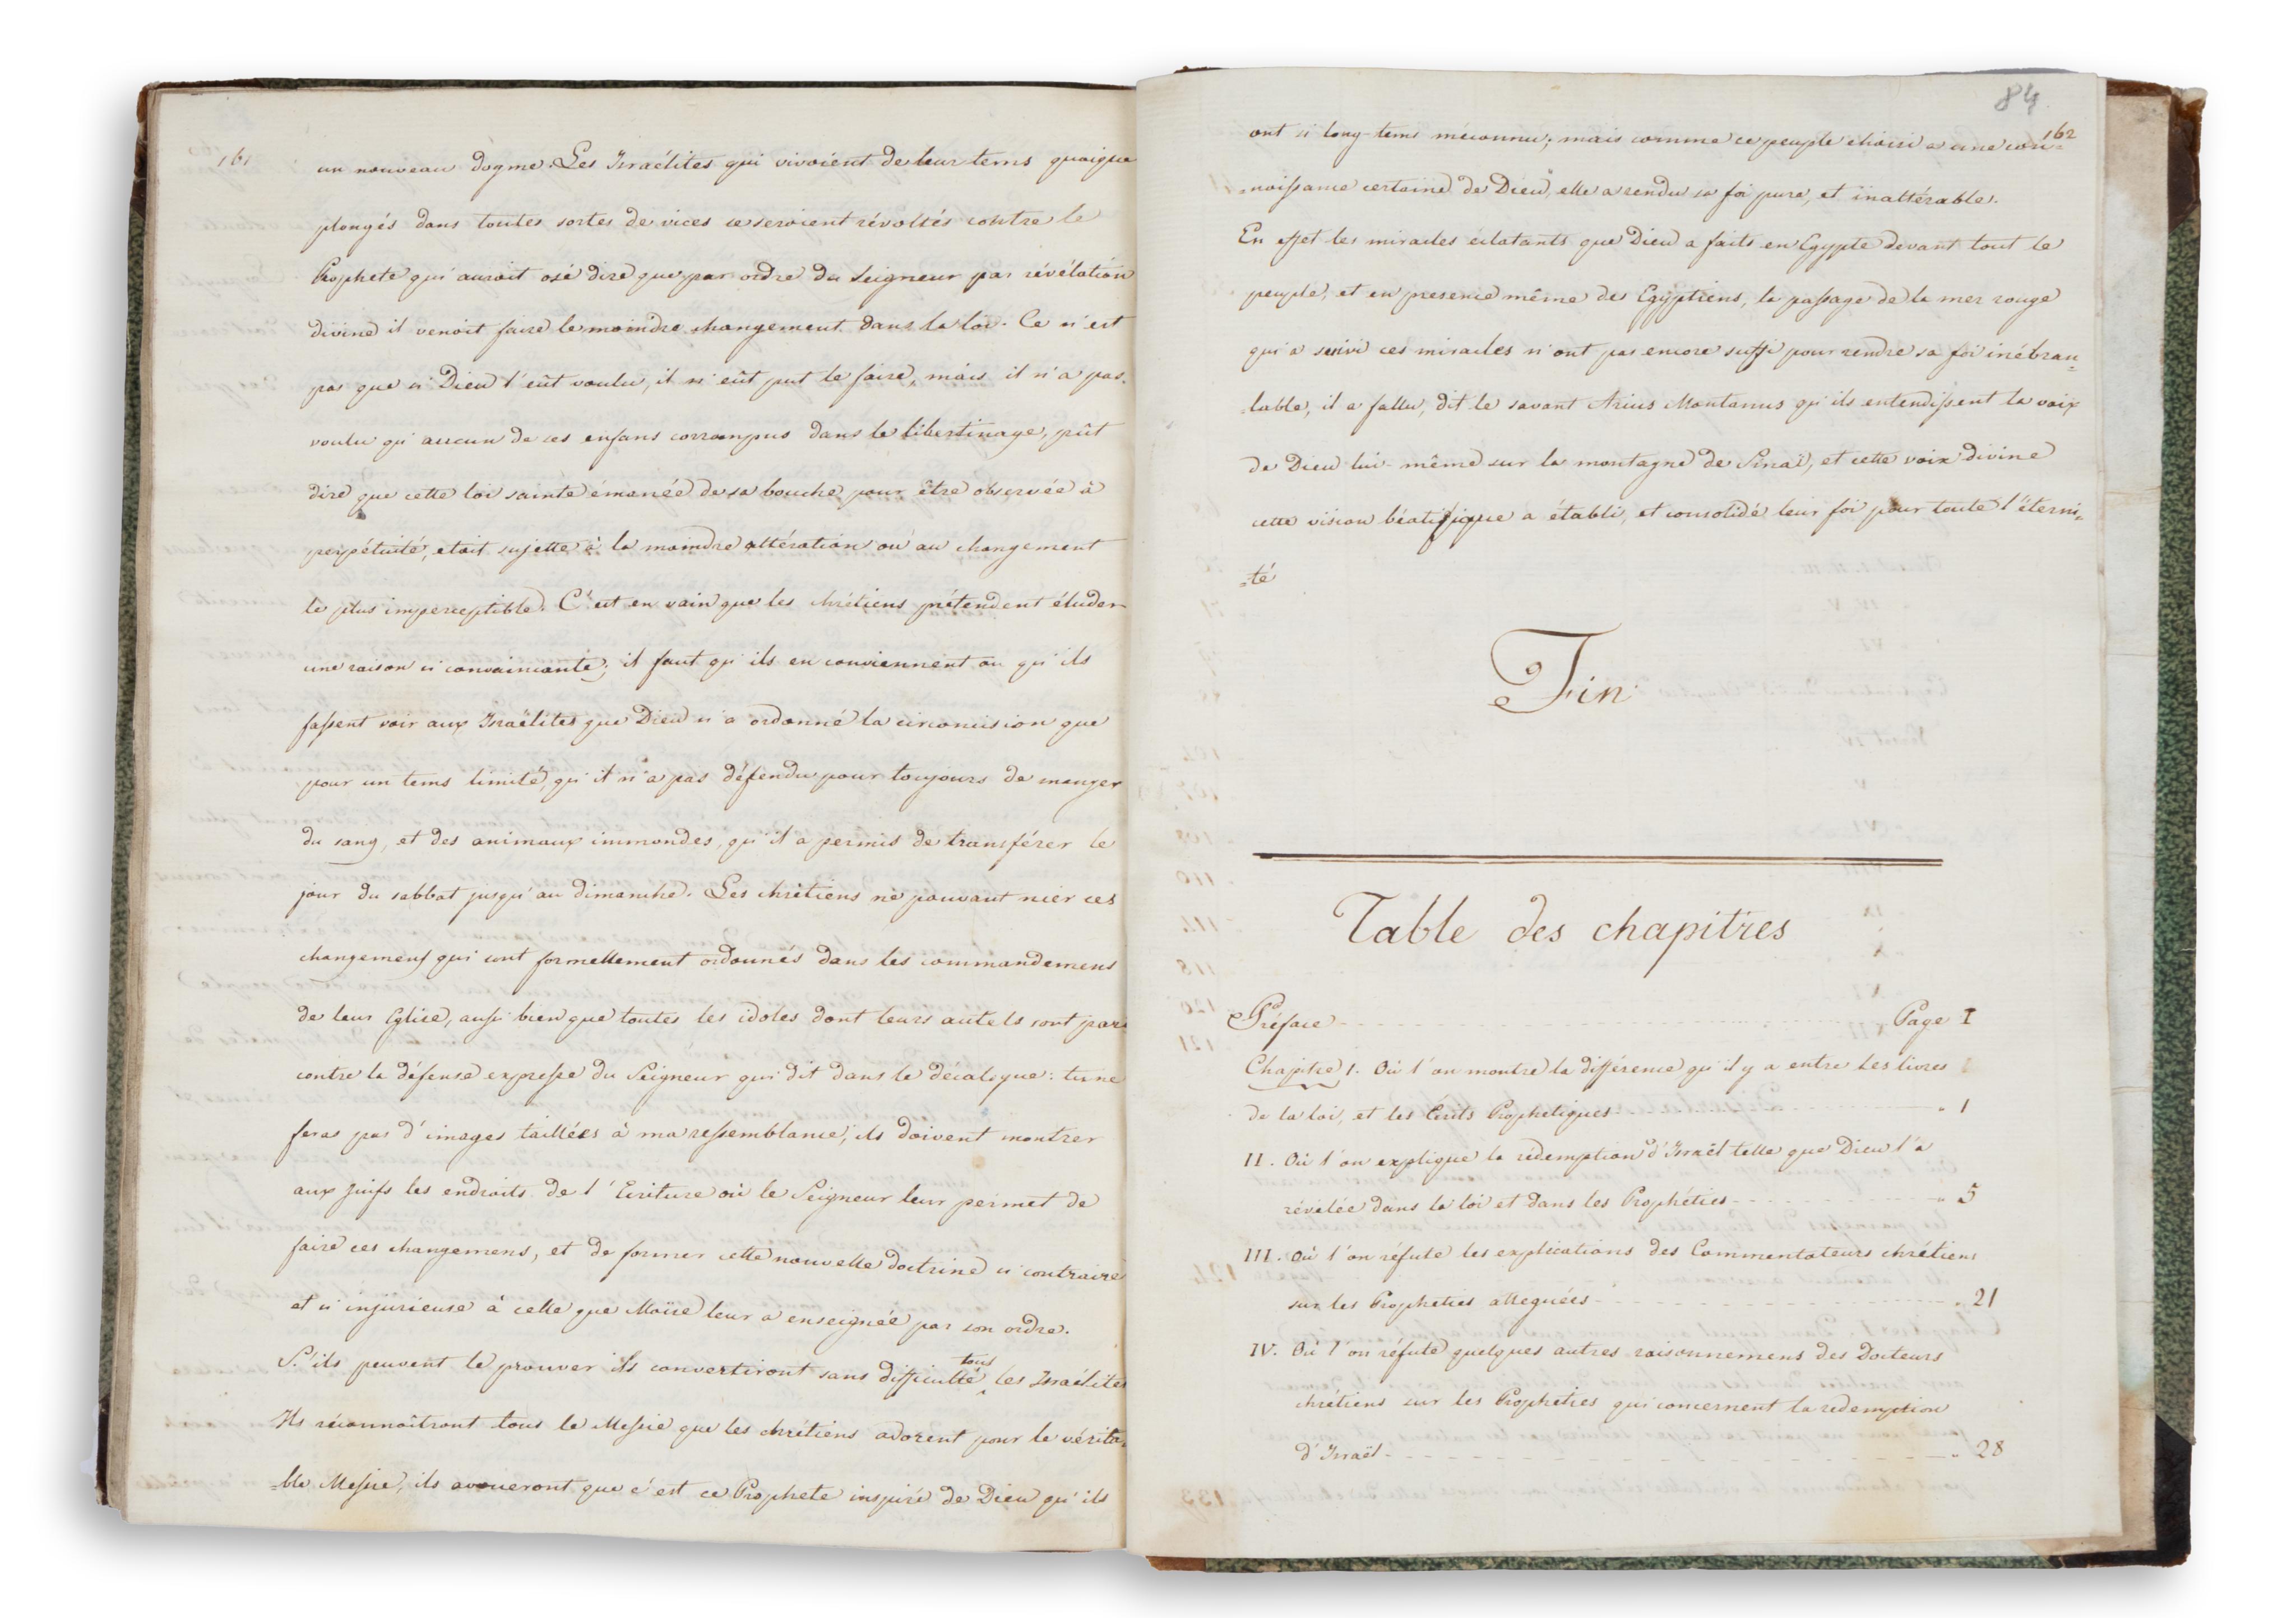 161
un nouveau dogme. Les Israélites qui vivoient de leur tems quoique
plongés dans toutes sortes de vices se seroient révoltés contre le
Prophete qui auroit osé dire que par ordre du Seigneur par révélation
divine il venoit faire le moindre changement dans la loi. Ce n'est
pas que si Dieu l'eût voulu, il n'eût put le faire, mais il n'a pas
voulu qu'aucun de ses enfans corrompus dans le libertinage, pût
dire que cette loi sainte émanée de sa bouche pour être observée à
perpétuité, etoit sujette à la moindre altération ou au changement
le plus imperceptible. C'est en vain que les chrétiens prétendent éluder
une raison si convaincante; il faut qu'ils en conviennent ou qu'ils
fassent voir aux Israëlites que Dieu n'a ordonné la circoncision que
pour un tems limité, qu'il n'a pas défendu pour toujours de manger
du sang, et des animaux immondes, qu'il a permis de transférer le
jour du sabbat jusqu'au dimanche. Les chrétiens ne pouvant nier ces
changemens qui sont formellement ordonnés dans les commandemens
de leur Eglise, aussi bien que toutes les idoles dont leurs autels sont
contre la défense expresse du Seigneur qui dit dans le décalogue: tu ne
feras pas d'images taillées à ma ressemblance, ils doivent montrer
aux Juifs les endroits de l'Ecriture où le Seigneur leur permet de
faire ces changemens, et de former cette nouvelle doctrine si contraire
et si injurieuse à celle que Moïse leur a enseignée par son ordre.
S'ils peuvent le prouver ils convertiront sans difficulté tous les Israélites
Ils réconnoîtront tous le Messie que les chrétiens adorent pour le vérita-
-ble Messie, ils avoueront que c'est ce Prophete inspiré de Dieu qu'ils
84
162
ont si long-tems méconnu; mais comme ce peuple choisi a une con=
=noissance certaine de Dieu, elle a rendu sa foi pure, et inaltérable.
En effet les miracles éclatants que Dieu a faits en Egypte devant tout le
peuple, et en presence même des Egyptiens, le passage de la mer rouge
qui a suivi ces miracles n'ont pas encore suffi pour rendre sa foi inébran=
-lable, il a fallu, dit le savant Arius Montanus qu'ils entendissent la voix
de Dieu lui-même sur la montagne de Sinaï, et cette voix divine
cette vision béatifique a établi, et consolidé leur foi pour toute l'éterni=
=té
Fin
Table des chapitres
Préface - - - Page I
Chapitre 1. Où l'on montre la différence qu'il y a entre les livres
de la loi, et les Ecrits Prophetiques - - - " 1
II. Où l'on explique la rédemption d'Israël telle que Dieu l'a
révélée dans la loi et dans les Prophéties - - - " 5
III. Où l'on réfute les explications des Commentateurs chrétiens
sur les Propheties alleguées - - - " 21
IV. Où l'on réfute quelques autres raisonnemens des Docteurs
chrétiens sur les Propheties qui concernent la redemption
d'Israël - - - " 28